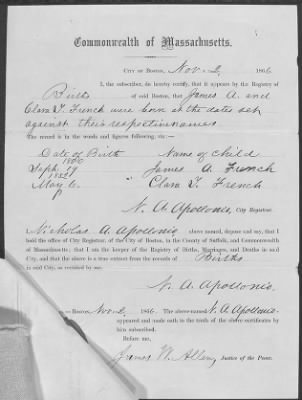 Commonwealth of Massachusetts.
CITY OF BOSTON, Nov. 2, 1866
I, the subscriber, do hereby certify, that it appears by the Registry of
Births of said Boston, that James A. and
Clara T. French were born at the dates set
against their respective names.
The record is in the words and figures following, viz:—
Date of Birth Name of Child
1850
Sept. 19 James A. French
1852
May 6. " Clara T. French
N. A. Apollonio, City Registrar.
I, Nicholas A. Apollonio above named, depose and say, that I
hold the office of City Registrar, of the City of Boston, in the County of Suffolk, and Commonwealth
of Massachusetts; that I am the keeper of the Registry of Births, Marriages, and Deaths in said
City, and that the above is a true extract from the records of Births
in said City, as certified by me.
N. A. Apollonio.
Boston, Nov. 2, 1866. The above-named N. A. Apollonio
appeared and made oath to the truth of the above certificates by
him subscribed.
Before me,
James W. Allen, Justice of the Peace.